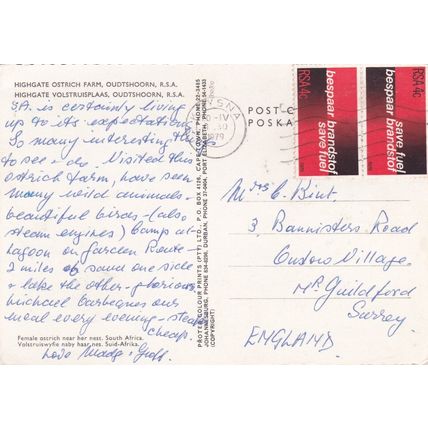 HIGHGATE OSTRICH FARM, OUDTSHOORN, R.S.A.
HIGHGATE VOLSTRUISPLAAS, OUDTSHOORN, R.S.A.
S.A. is certainly living
up to its expectation
So many interesting things
to see & do. Visited this
ostrich farm, have seen
many wild animals-
beautiful birds-(also
steam engines) Camp at
lagoon on Garden Route-
2 miles of sand one side
& lake the other-glorious
Michael barbeques our
meal every evening-steak
cheap.
Female ostrich near her nest. South Africa.
Volstruiswyfie naby haar nes. Suid-Afrika.
Love Madge & Geoff.
PROTEA COLOUR PRINTS (PTY) LTD., P.O. BOX 4126, CAPE TOWN, PHONE
JOHANNESBURG, PHONE DURBAN, PHONE PORT ELIZABETH, PHONE
(COPYRIGHT)
KNYSNA
IV
1979
POSTC
POSKA
RSA 4c
bespaar brandstof
save fuel
RSA 4c
save fuel
bespaar brandstof
Mrs C. Bint.
3, Bannisters Road
Onslow Village.
Nr Guildford
Surrey.
ENGLAND.